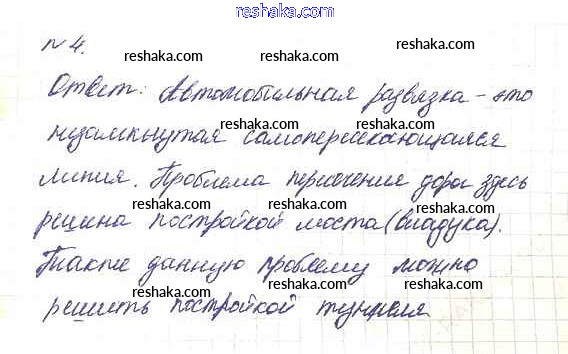 reshaka.com
№4.
reshaka.com reshaka.com
Ответ: Автомобильная развязка – это
reshaka.com reshaka.com
незамкнутая самопересекающаяся
reshaka.com reshaka.com
линия. Проблема пересечения дорог здесь
reshaka.com reshaka.com
решена постройкой моста (виадука).
reshaka.com reshaka.com
Также данную проблему можно
reshaka.com reshaka.com
решить постройкой туннеля